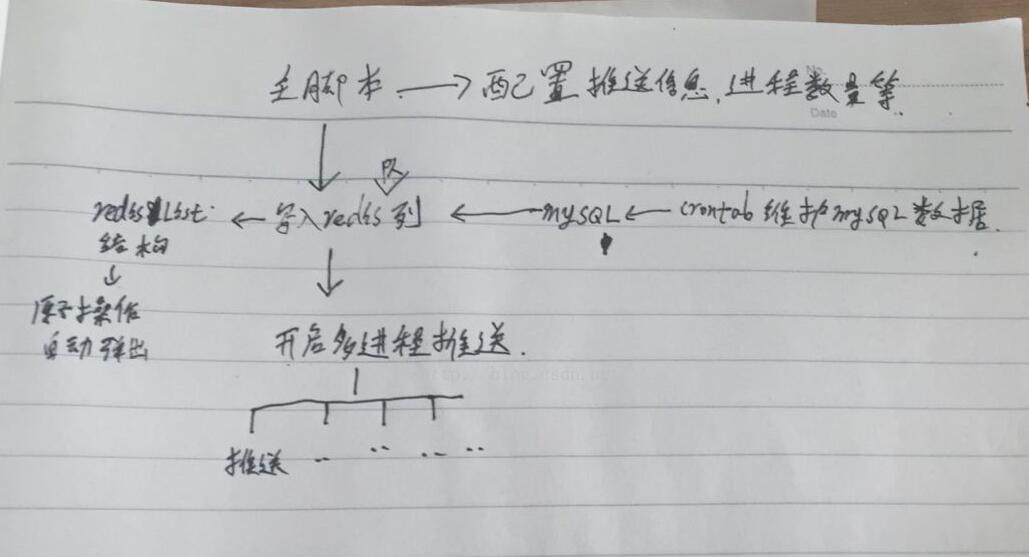 主脚本 → 配置推送信息,进程数量等.
No.
Date
队
redis List ← 写入redis列 ← mySQL ← crontab维护mySQL数据.
结构
原子操作
自动弹出
开启多进程推送.
http://blog.csdn.net
推送 .. .. .. ..